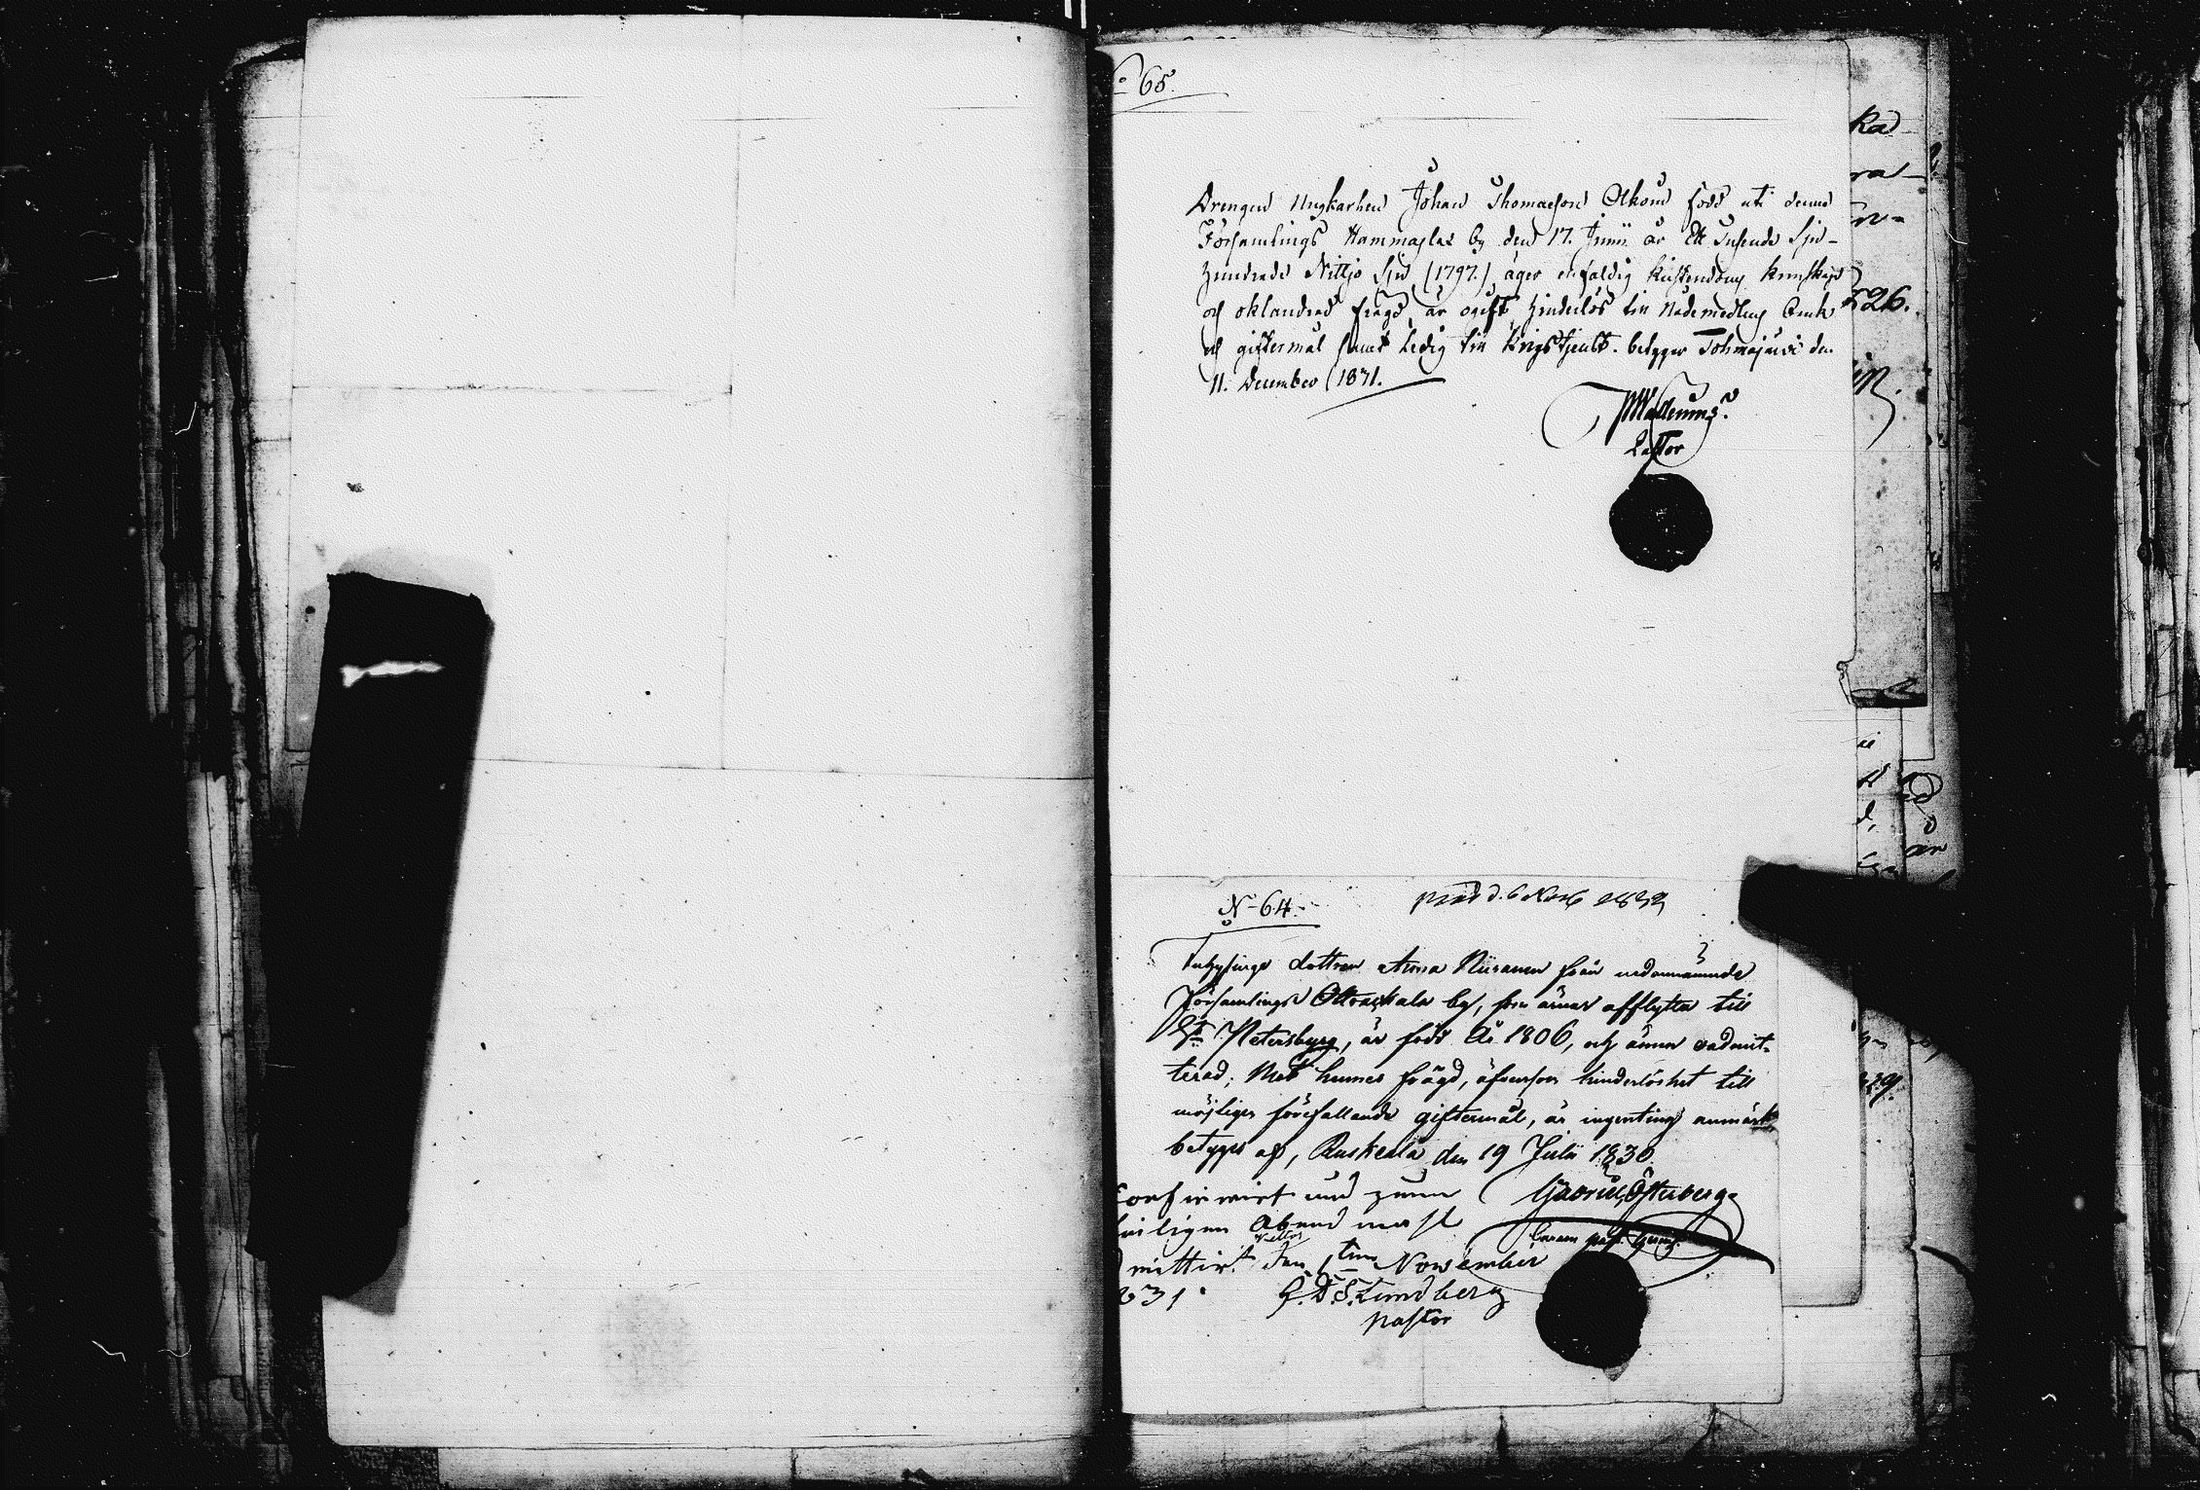 No 65.
Drengen Ungkarlen Johan Thomasson Okond född uti denna
Församlings Hammaslax by den 17. Junii år Ett Tusende Sju-
hundrade Nittjo Sju (1797.) äger enfaldig kristendoms kunskap
och oklandrad frägd, är ogift, hinderlös till Nademedlens bruk
och giftermål samt Ledig till Krigstjenst. betygar Tohmajärvi den
11. December 1831.
Pastor
No 64. 
d. 6 1832
Inhysinge dottren Anna Niiranen från nedannämnde
Församlings Otrackala by, som ärnar afflytta till
St Petersburg, är född År 1806, och ännu oadmit-
terad; Mot hennes frägd, äfvensom hinderlöshet till
möjligen förefallande giftermål, är ingenting anmärkt,
betygas af, Ruskeala den 19 Julii 1830
Confirmirt und zum Gabriel Österberg
heiligen Abend mahl
mittirt den 1ten November
831. G. D. S. Lundberg
Pastor
ka
ra
526.